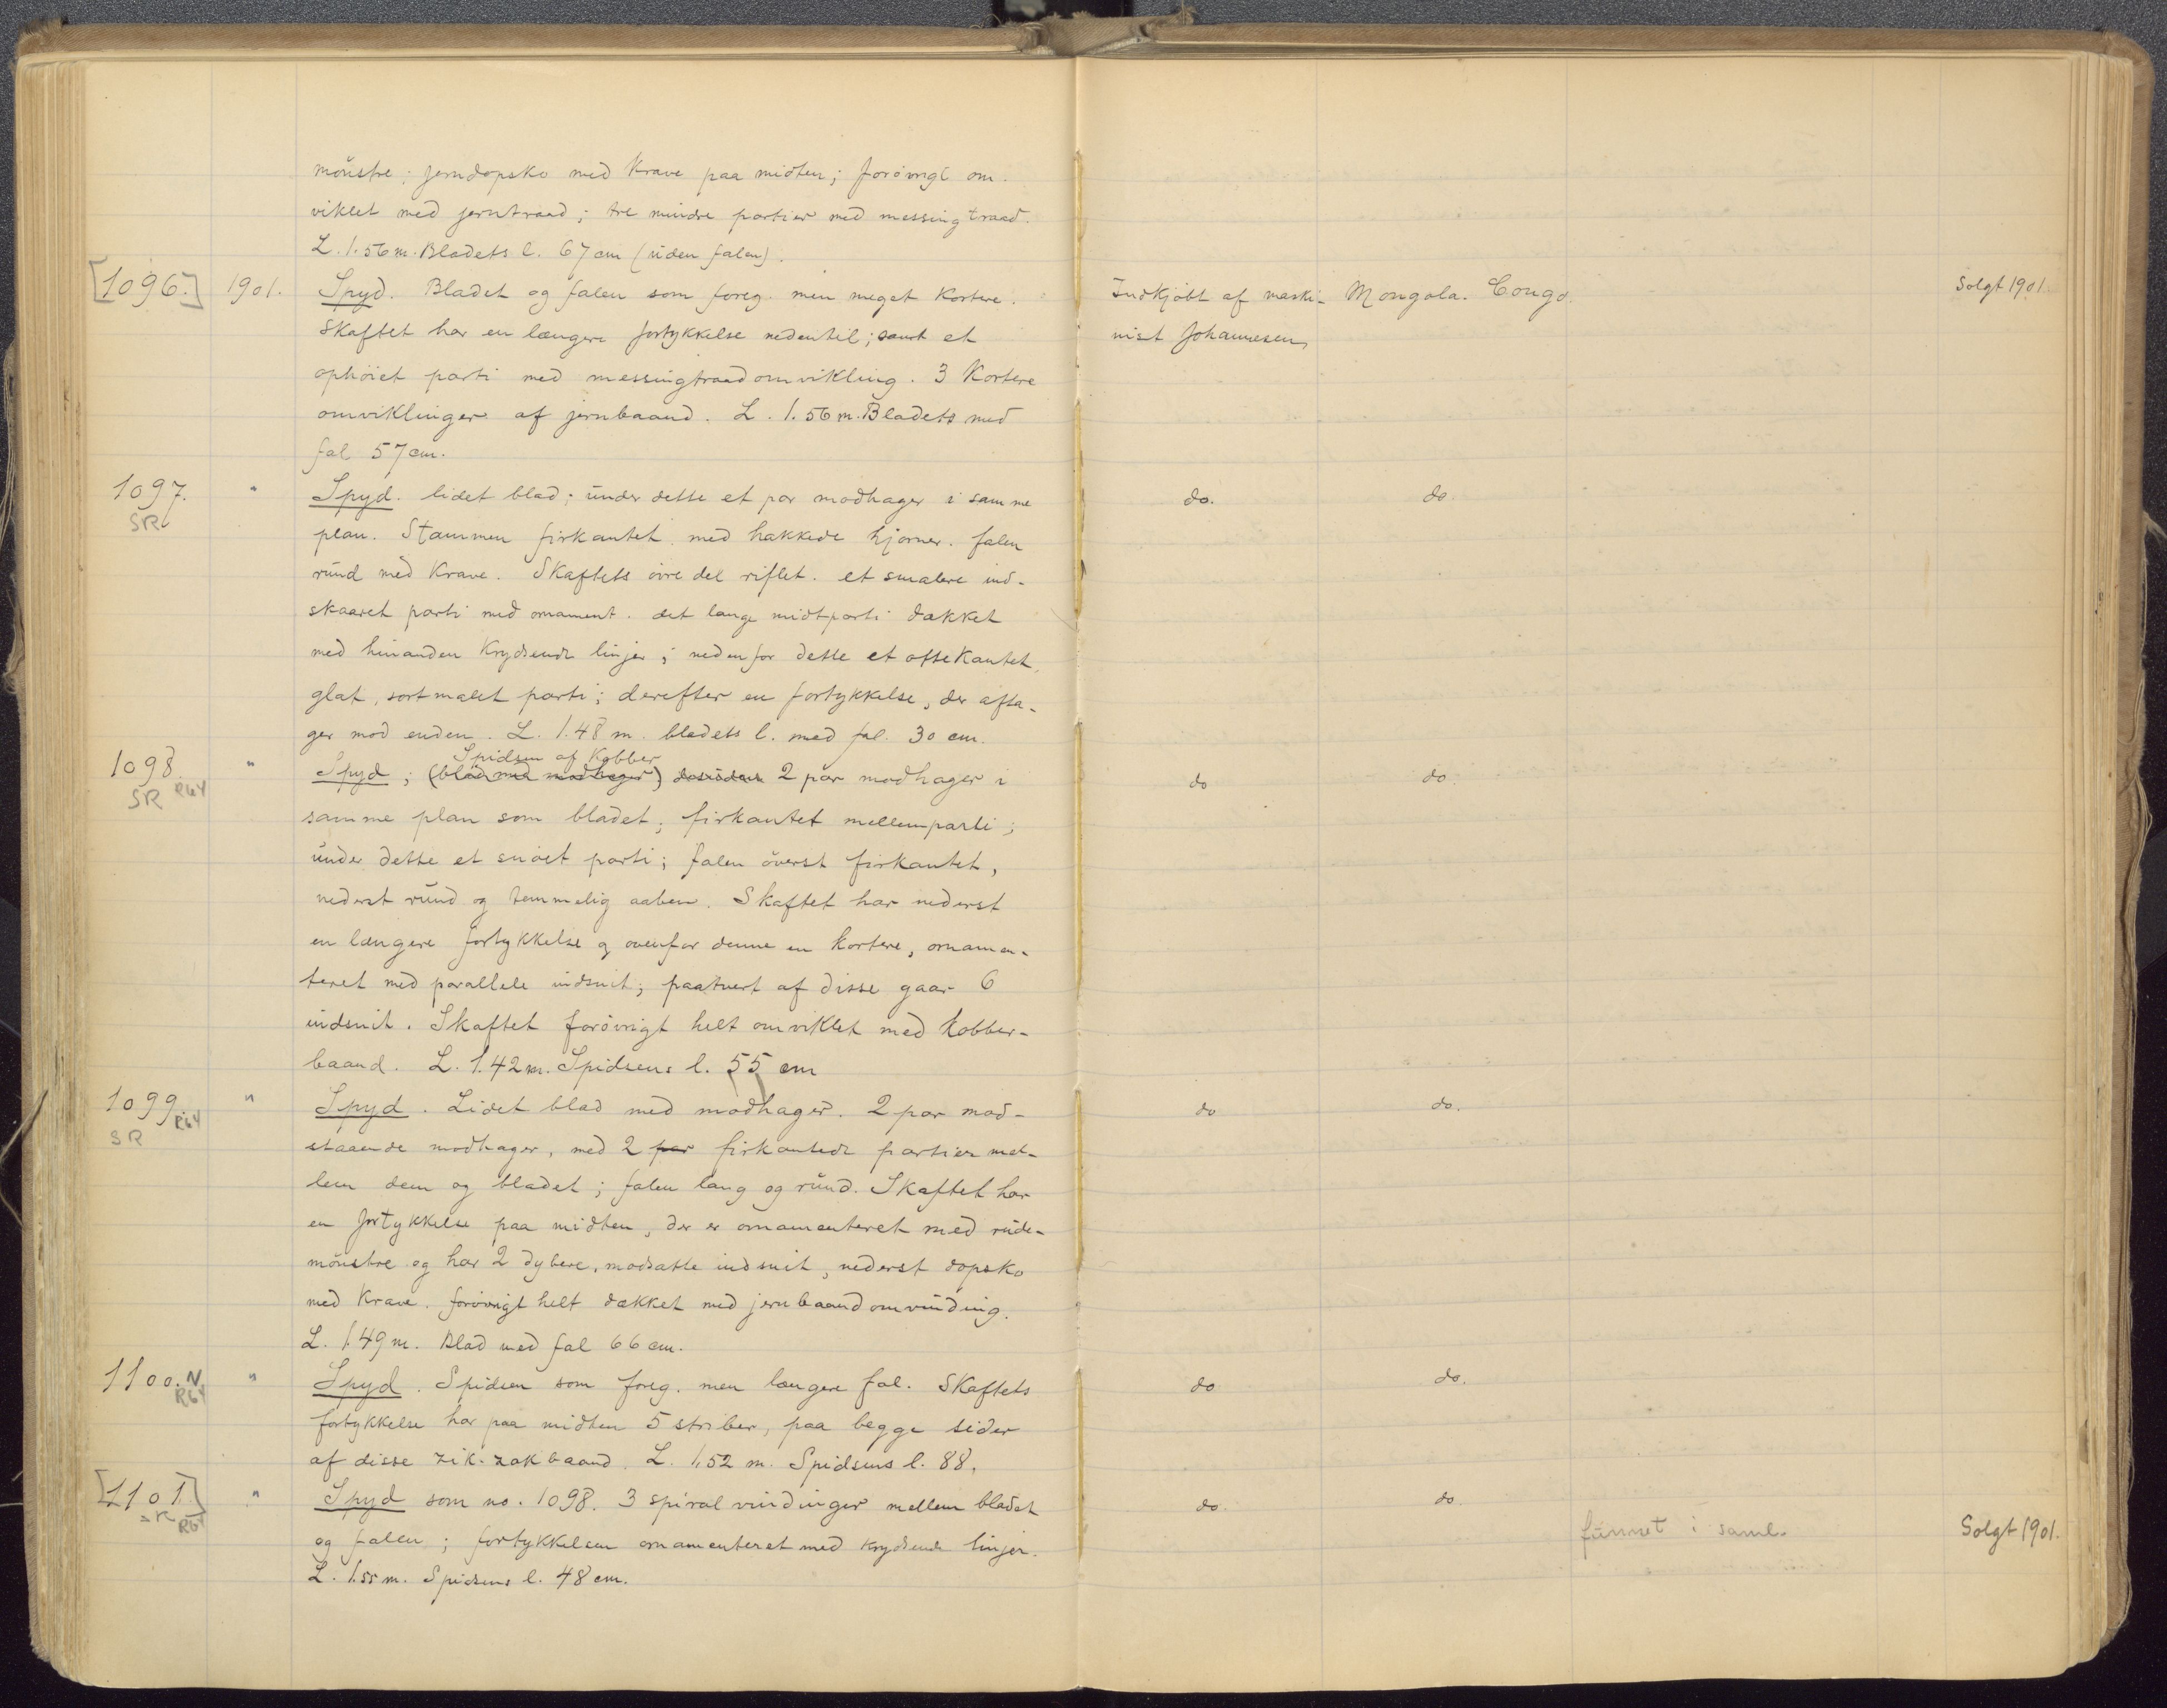 mönstre; jerndopsko med Krave paa midten; forövrigt om-
viklet med jerntraad; tre mindre partier med messingtraad.
L. 1.56 m. Bladets l. 67 cm (uden falen).
[1096.] 1901. Spyd. Bladet og falen som foreg. men meget Kortere. Indkjöbt af maski- Mongola. Congo. Solgt 1901.
Skaftet har en længere fortykkelse nedentil; samt et nist Johannesen
ophöiet parti med messingtraadomvikling. 3 Kortere
omviklinger af jernbaand. L. 1.56 m. Bladets med
fal 57 cm.
1097. " Spyd. lidet blad; under dette et par modhager i samme do. do
SR plan. Stammen firkantet med hakkede hjörner. falen
rund med Krave. Skaftets övre del riflet. et smalere ind-
skaaret parti med ornament. det lange midtparti dækket
med hinanden Krydsende linjer; nedenfor dette et ottekantet,
glat, sortmalet parti; derefter en fortykkelse, der afta-
ger mod enden. L. 1.48 m. bledets l. med fal 30 cm.
Spidsen af Kobber
1098. " Spyd; (blad med modhager) desuden 2 par modhager i do do
SR R64
samme plan som bladet; firkantet mellemparti;
under dette et snoet parti; falen överst firkantet,
nederst rund og temmelig aaben. Skaftet har nederst
en længere fortykkelse og ovenfor denne en Kortere, ornamen-
teret med parallele indsnit; paatvert af disse gaar 6
indsnit. Skaftet forövrigt helt omviklet med Kobber-
baand. L. 1.42 m. Spidsens l. 55 cm
1099 R64 " Spyd. Lidet blad med modhager. 2 par mod- do do.
SR staaende modhager, med 2 par firkantede partier mel-
lem dem og bladet; falen lang og rund. Skaftet har
en fortykkelse paa midten, der er ornamenteret med rude-
mönstre og har 2 dybere, modsatte indsnit, nederst dopsko
med Krave. forövrigt helt dækket med jernbaandomvinding.
L. 1.49 m. Blad med fal 66 cm.
1100. N " Spyd. Spidsen som foreg. men længere fal. Skaftets do do.
R64 fortykkelse har paa midten 5 striber, paa begge sider
af disse zik-zakbaand. L. 1,52 m. Spidsens l. 88.
[1101] " Spyd som no. 1098. 3 spiralvindinger mellem bladet do. do.
SR R64 og falen; fortykkelsen ornamenteret med Krydsende linjer. funnet i saml. Solgt 1901.
L. 1.55 m. Spidsens l. 48 cm.